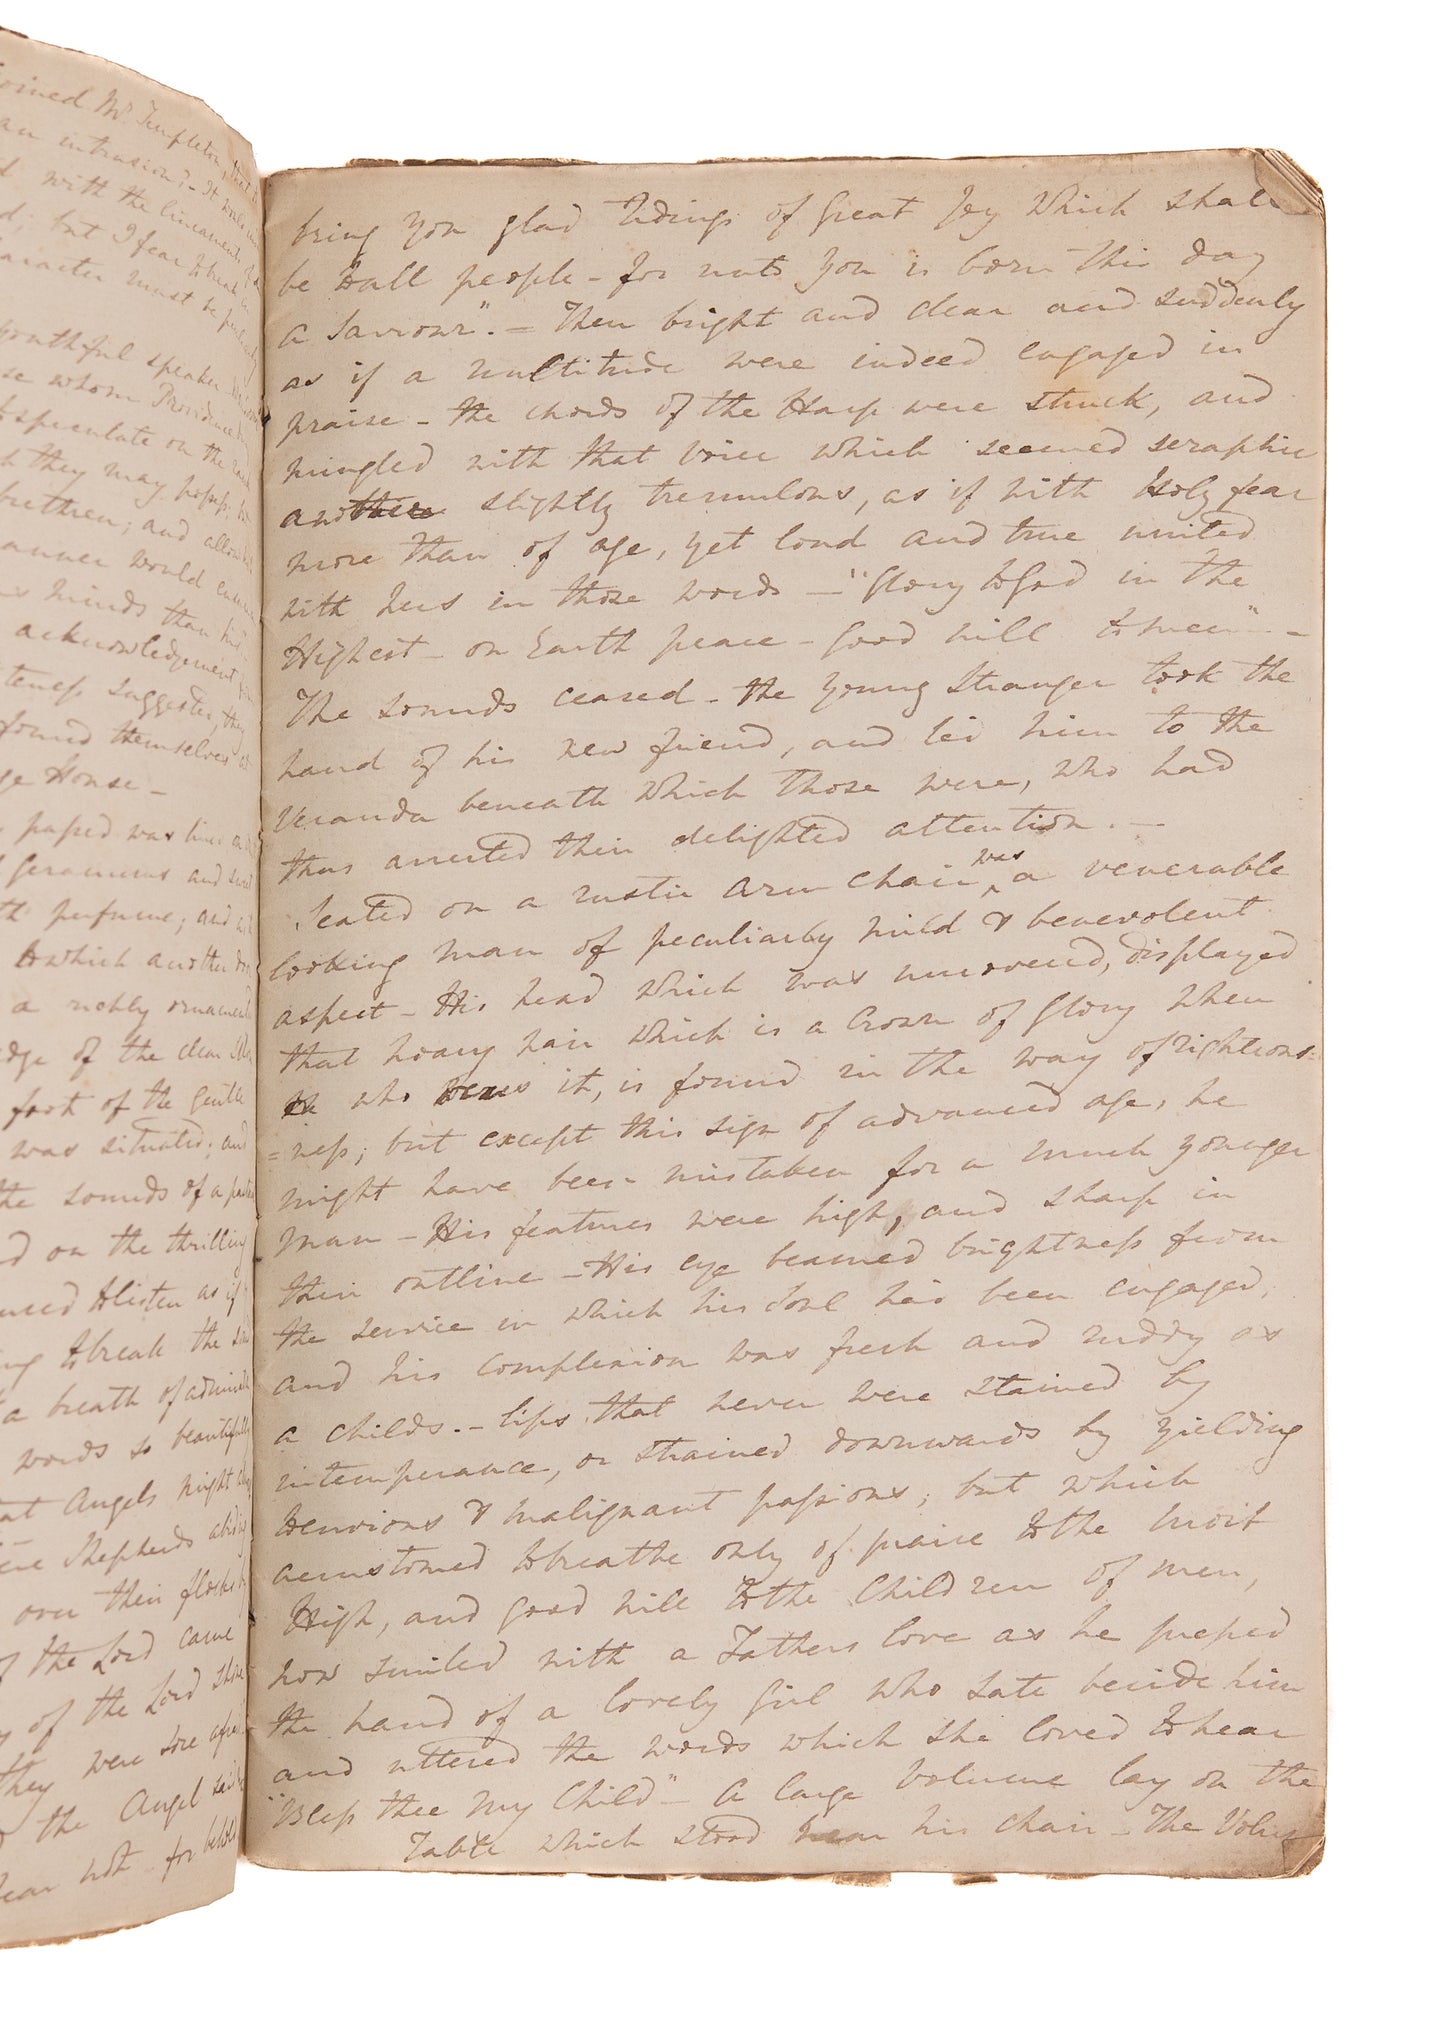 joined Mr. Templeton, that
an intrusion? - It would
with the lineaments of a
d; but I fear to break
character must be
youthful speaker
se whom Providence
speculate on the
h they may possess
brethren; and allow
manner would
minds than his
acknowledgement
teness suggested, they
found themselves at
ge House -
passed was lined on
Geraniums and sweet
th perfume; and
to which another door
a richly ornamented
edge of the clear
foot of the gentle
was situated; and
the sounds of a
d on the thrilling
used to listen as if
ng to break the
a breath of
words so beautifully
at Angels might
ere Shepherds abiding
over their flocks by
of the Lord came
y of the Lord shone
they were sore afraid
the Angel said
fear not - for behold
bring you glad tidings of Great Joy which shall
be to all people - for unto you is born this day
a Saviour". - Then bright and clear and suddenly
as if a multitude were indeed engaged in
praise - the chords of the Harp were struck, and
mingled with that voice which seemed seraphic
another slightly tremulous, as if with Holy fear
more than of age, yet loud and true united
with hers in those words - "Glory to God in the
Highest - on Earth peace - Good will to men" -
The sounds ceased - the young Stranger took the
hand of his new friend, and led him to the
Veranda beneath which those were, who had
thus arrested their delighted attention. -
Seated on a rustic arm chair was a venerable
looking man of peculiarly mild & benevolent
aspect - His head which was uncovered, displayed
that hoary hair which is a Crown of Glory when
he who wears it, is found in the way of righteous=
=ness; but except this sign of advanced age, he
might have been mistaken for a much younger
man - His features were high, and sharp in
their outline - His eye beamed brightness from
the service in which his soul had been engaged,
and his complexion was fresh and ruddy as
a childs. - lips that never were stained by
intemperance, or strained downwards by yielding
to envious & malignant passions; but which
accustomed to breathe only of praise to the most
High, and good will to the Children of men,
now smiled with a Fathers love as he pressed
the hand of a lovely Girl who sate beside him
and uttered the words which she loved to hear
"Bless thee my Child" - A large Volume lay on the
Table which stood near his chair - The Volu